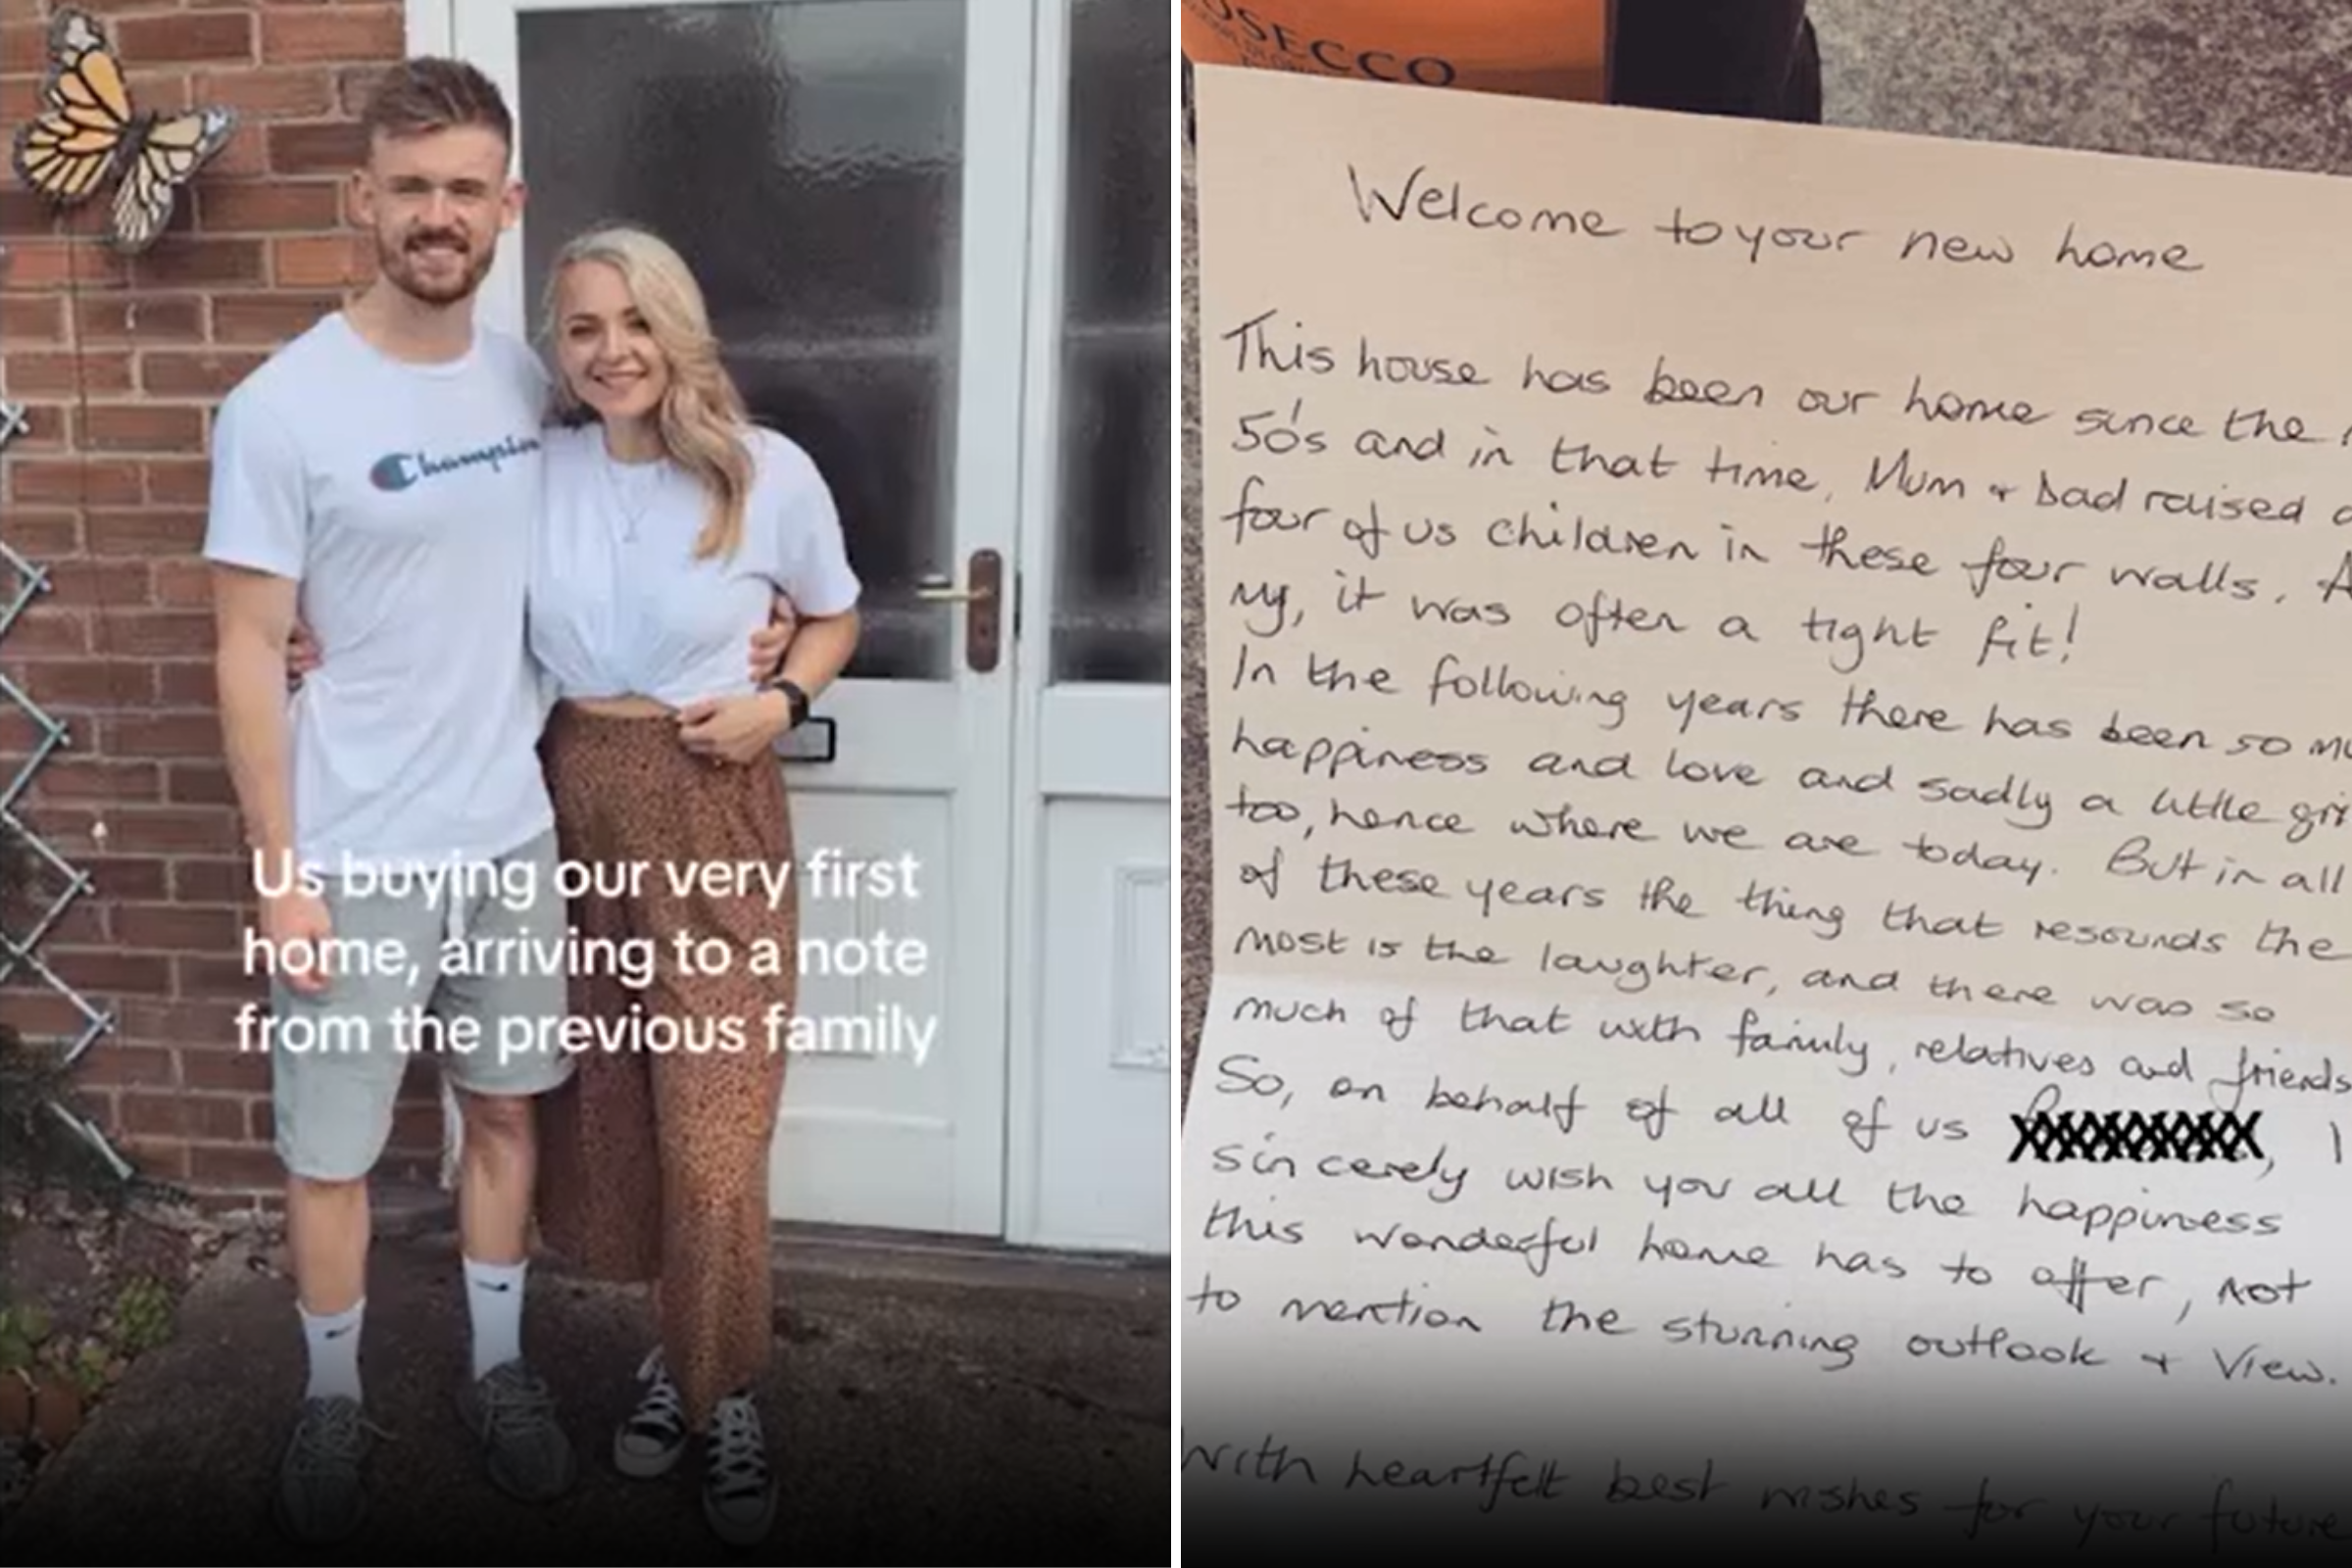 Champion
Us buying our very first
home, arriving to a note
from the previous family
OSECCO
Welcome to your new home
This house has been our home since the
50's and in that time, Mum + Dad raised a
four of us children in these four walls. A
ny, it was often a tight fit!
In the following years there has been so mu
happiness and love and sadly a little gri
too, hence where we are today. But in all
of these years the thing that resounds the
most is the laughter, and there was so
much of that with family, relatives and friends
So, on behalf of all of us , I
sincerely wish you all the happiness
this wonderful home has to offer, not
to mention the stunning outlook + view.
With heartfelt best wishes for your future